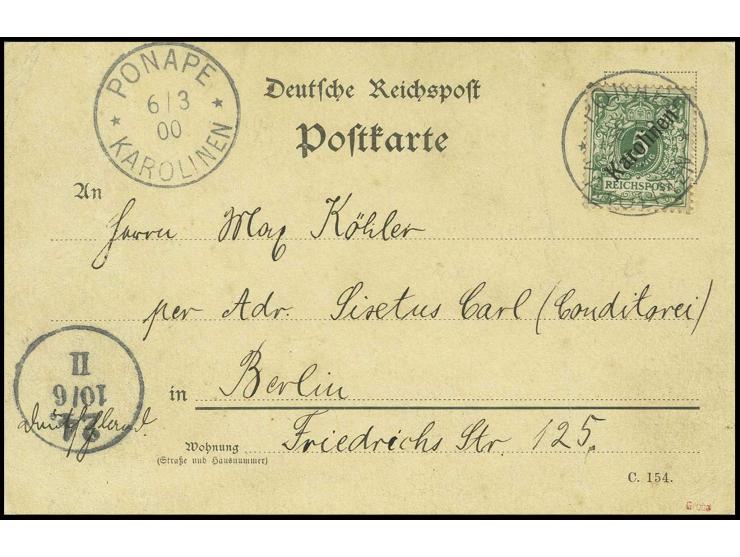 PONAPE
6/3
00
KAROLINEN
Deutsche Reichspost
Postkarte
Karolinen
REICHSPOST
An
Herrn Max Köhler
per Adr. Sixtus Carl (Conditorei)
in Berlin
Friedrichs Str. 125.
Wohnung
(Straße und Hausnummer)
C. 154.
24
10/6
II